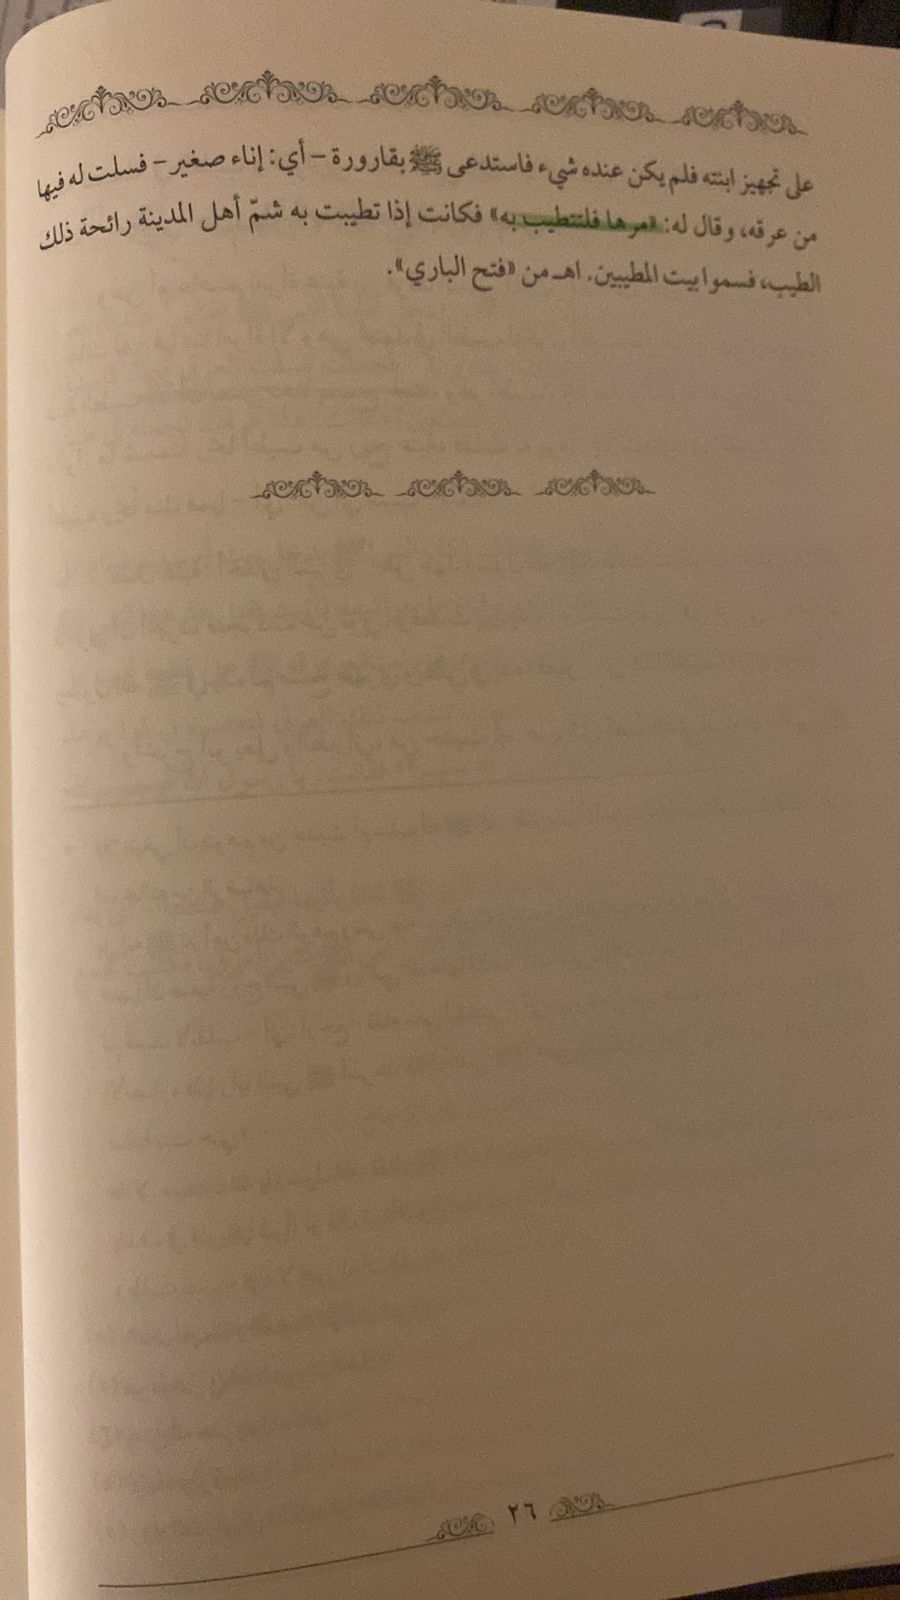 على تجهيز ابنته فلم يكن عنده شيء فاستدعى ﷺ بقارورة – أي: إناء صغير – فسلت له فيها
من عرقه، وقال له: «مرها فلتتطيب به» فكانت إذا تطيبت به شمّ أهل المدينة رائحة ذلك
الطيب، فسموا بيت المطيبين. اهـ من «فتح الباري».
٢٦